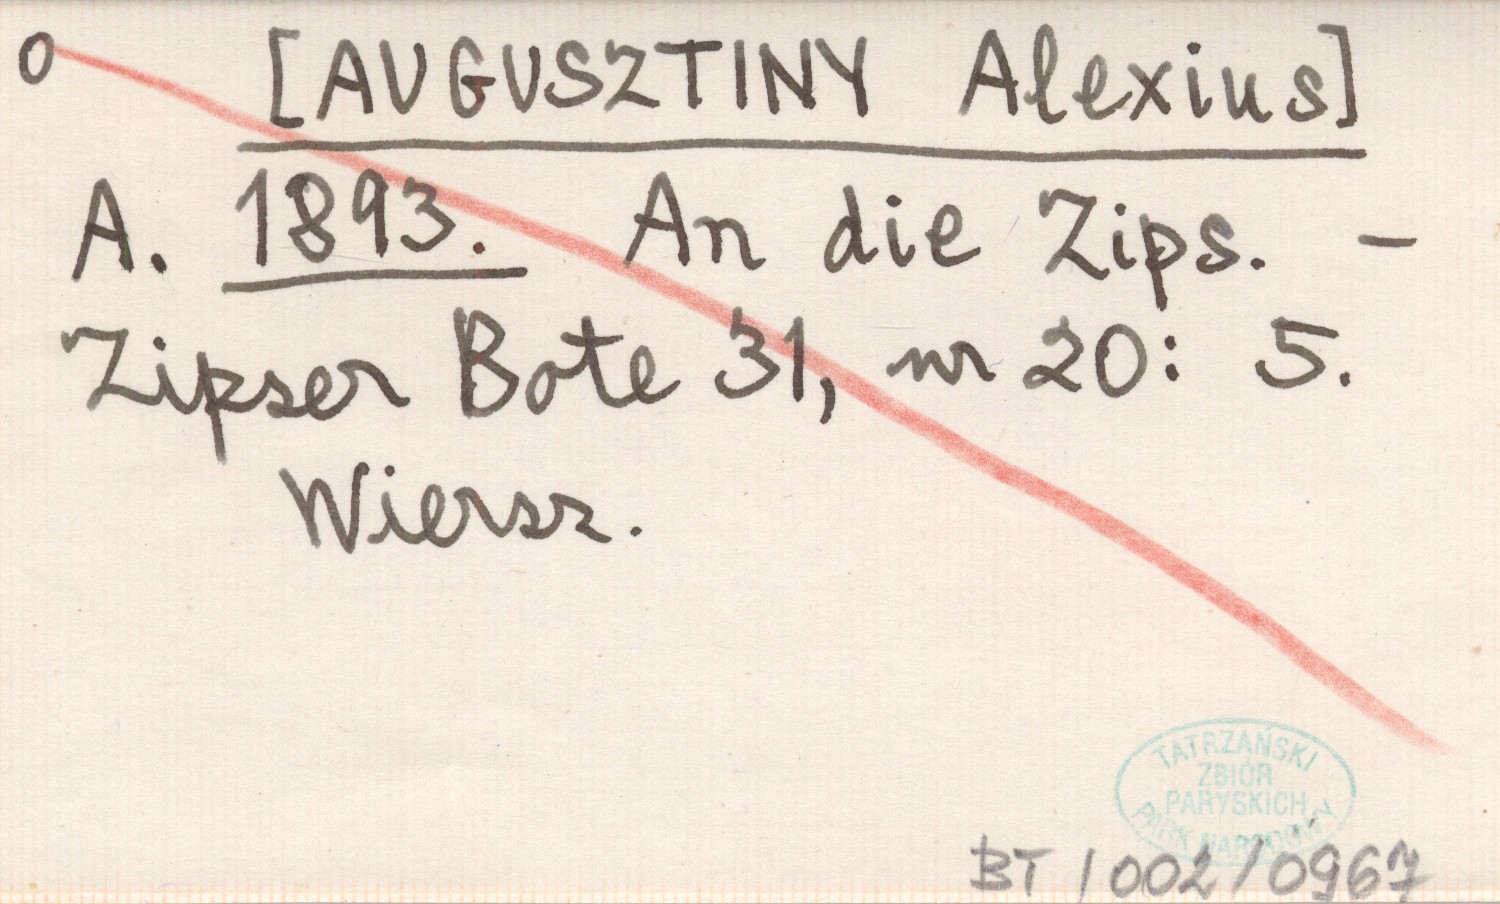 O [AUGUSZTINY Alexius]
A. 1893. An die Zips. –
Zipser Bote 31, nr 20: 5.
Wiersz.
TATRZAŃSKI
ZBIÓR
PARYSKICH
PARK NARODOWY
BT / 002 / 0967